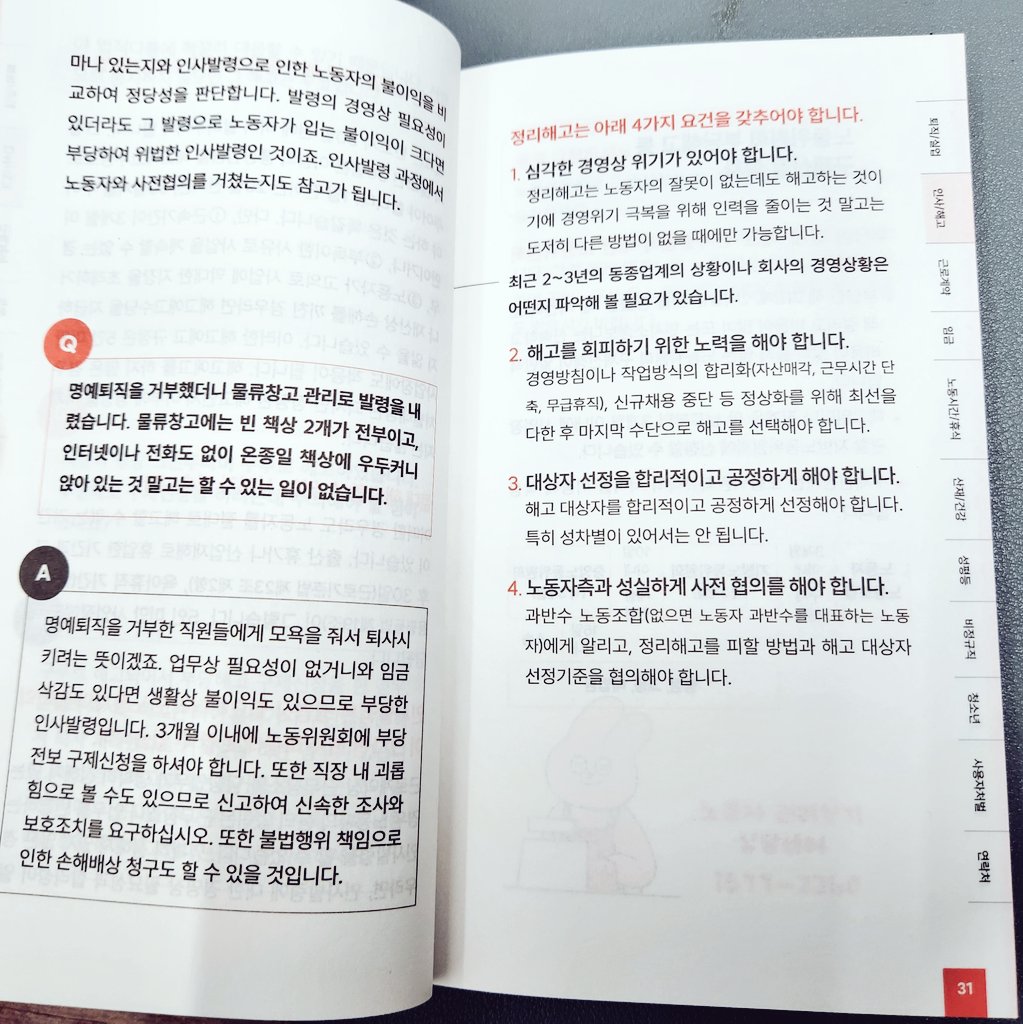 마나 있는지와 인사발령으로 인한 노동자의 불이익을 비
교하여 정당성을 판단합니다. 발령의 경영상 필요성이
있더라도 그 발령으로 노동자가 입는 불이익이 크다면
부당하여 위법한 인사발령인 것이죠. 인사발령 과정에서
노동자와 사전협의를 거쳤는지도 참고가 됩니다.
Q
명예퇴직을 거부했더니 물류창고 관리로 발령을 내
렸습니다. 물류창고에는 빈 책상 2개가 전부이고,
인터넷이나 전화도 없이 온종일 책상에 우두커니
앉아 있는 것 말고는 할 수 있는 일이 없습니다.
A
명예퇴직을 거부한 직원들에게 모욕을 줘서 퇴사시
키려는 뜻이겠죠. 업무상 필요성이 없거니와 임금
삭감도 있다면 생활상 불이익도 있으므로 부당한
인사발령입니다. 3개월 이내에 노동위원회에 부당
전보 구제신청을 하셔야 합니다. 또한 직장 내 괴롭
힘으로 볼 수도 있으므로 신고하여 신속한 조사와
보호조치를 요구하십시오. 또한 불법행위 책임으로
인한 손해배상 청구도 할 수 있을 것입니다.
정리해고는 아래 4가지 요건을 갖추어야 합니다.
1. 심각한 경영상 위기가 있어야 합니다.
정리해고는 노동자의 잘못이 없는데도 해고하는 것이
기에 경영위기 극복을 위해 인력을 줄이는 것 말고는
도저히 다른 방법이 없을 때에만 가능합니다.
최근 2~3년의 동종업계의 상황이나 회사의 경영상황은
어떤지 파악해 볼 필요가 있습니다.
2. 해고를 회피하기 위한 노력을 해야 합니다.
경영방침이나 작업방식의 합리화(자산매각, 근무시간 단
축, 무급휴직), 신규채용 중단 등 정상화를 위해 최선을
다한 후 마지막 수단으로 해고를 선택해야 합니다.
3. 대상자 선정을 합리적이고 공정하게 해야 합니다.
해고 대상자를 합리적이고 공정하게 선정해야 합니다.
특히 성차별이 있어서는 안 됩니다.
4. 노동자측과 성실하게 사전 협의를 해야 합니다.
과반수 노동조합(없으면 노동자 과반수를 대표하는 노동
자)에게 알리고, 정리해고를 피할 방법과 해고 대상자
선정기준을 협의해야 합니다.
퇴직/실업
인사/해고
근로계약
임금
노동시간/휴식
산재/건강
성평등
비정규직
청소년
사용자처벌
연락처
31